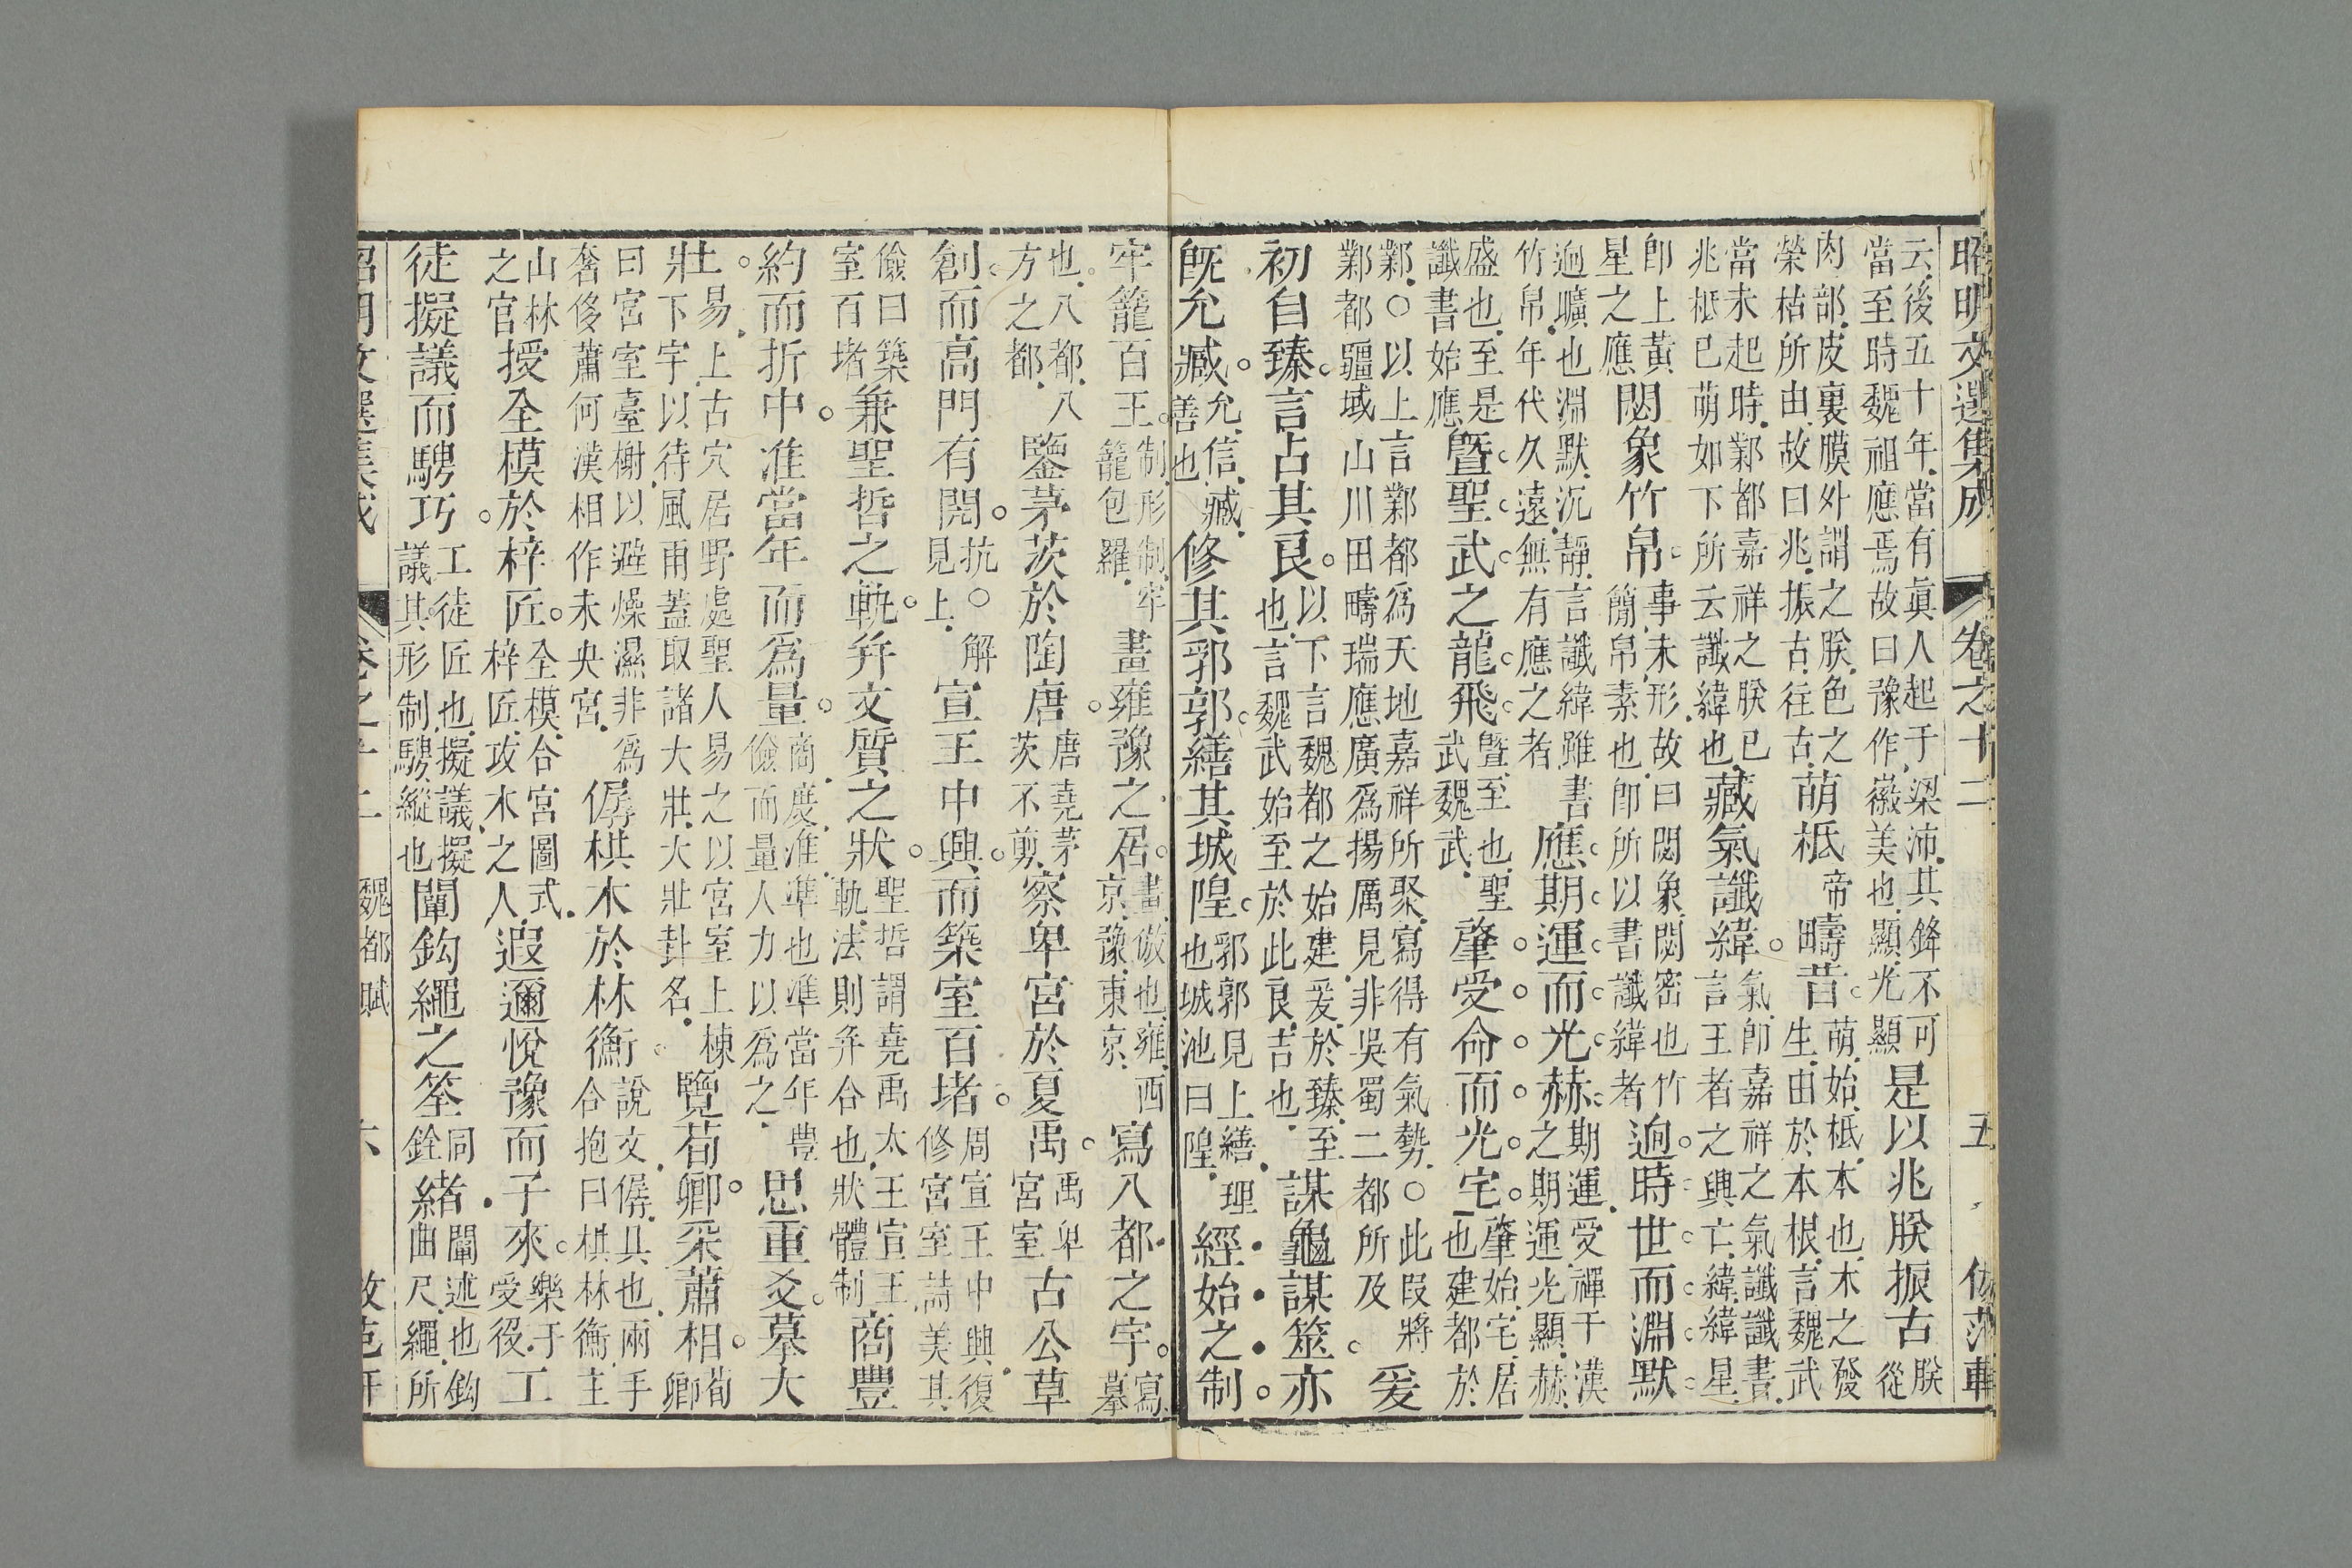 昭明文選集成 卷之十二 五 倣范軒
云後五十年當有眞人起于梁沛其鋒不可
當至時魏祖應焉故曰豫作徽美也顯光顯
是以兆朕振古
朕
從
肉部皮裏膜外謂之朕色之
榮枯所由故曰兆振古往古
萌柢
帝
疇昔
萌始柢本也木之發
生由於本根言魏武
當未起時鄴都嘉祥之朕已
兆柢已萌如下所云讖緯也
藏氣讖緯
氣卽嘉祥之氣讖讖書
言王者之興亡緯緯星
卽上黃
星之應
閟象竹帛
事未形故曰閟象閟密也竹
簡帛素也卽所以書讖緯者
迥時世而淵默
迥曠也淵默沉靜言讖緯雖書
竹帛年代久遠無有應之者
應期運而光赫
期運受禪干漢
之期運光顯赫
盛也至是
讖書始應
曁聖武之龍飛
曁至也聖
武魏武
肇受命而光宅
肇始宅居
也建都於
鄴○以上言鄴都爲天地嘉祥所聚寫得有氣勢○此叚將
鄴都疆域山川田疇瑞應廣爲揚厲見非吳蜀二都所及
爰
初自臻言占其良
以下言魏都之始建爰於臻至
也言魏武始至於此良吉也
謀龜謀筮亦
旣允臧
允信臧
善也
修其郛郭繕其城隍
郛郭見上繕理
也城池曰隍
經始之制
牢籠百王
制形制牢
籠包羅
畫雍豫之居
畫倣也雍西
京豫東京
寫八都之宇
寫
摹
也八都八
方之都
鑒茅茨於陶唐
唐堯茅
茨不剪
察卑宮於夏禹
禹卑
宮室
古公草
創而高門有閌
抗○解
見上
宣王中興而築室百堵
周宣王中興復
修宮室詩美其
儉曰築
室百堵
兼聖哲之軌幷文質之狀
聖哲謂堯禹太王宣王
軌法則幷合也狀體制
商豐
約而折中准當年而爲量
商度准準也準當年豐
儉而量人力以爲之
思重爻摹大
壯
易上古穴居野處聖人易之以宮室上棟
下宇以待風雨蓋取諸大壯大壯卦名
覽荀卿采蕭相
荀
卿
曰宮室臺榭以避燥濕非爲
奢侈蕭何漢相作未央宮
僝栱木於林衡
說文僝具也兩手
合抱曰栱林衡主
山林
之官
授全模於梓匠
全模合宮圖式
梓匠攻木之人
遐邇悅豫而子來
樂于
受役
工
徒擬議而騁巧
工徒匠也擬議擬
議其形制騁縱也
闡鈎繩之筌
同
銓
緒
闡述也鈎
曲尺繩所
昭明文選集成 卷之十二 魏都賦 六 倣范軒